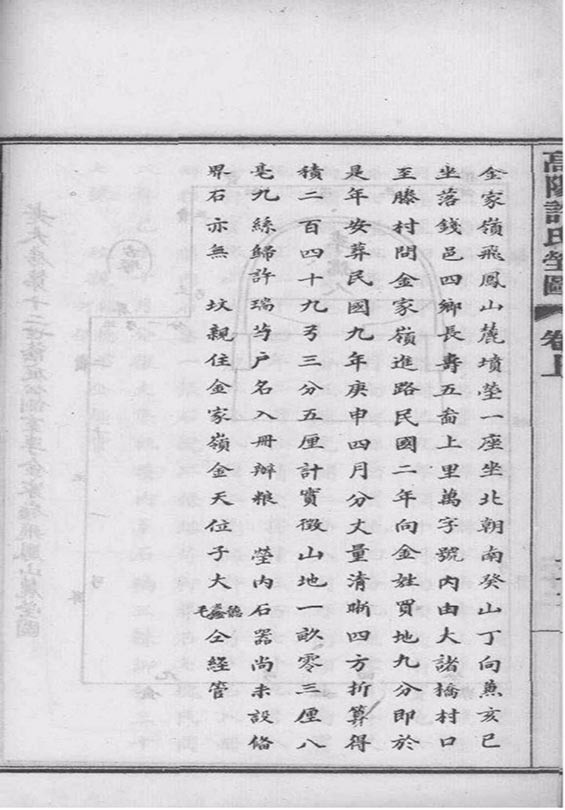 高陽許氏塋圖 卷上
金家嶺飛鳳山麓墳塋一座坐北朝南癸山丁向兼亥巳
坐落錢邑四鄉長壽五啚上里萬字號內由大諸橋村口
至滕村問金家嶺進路民國二年向金姓買地九分即於
是年安葬民國九年庚申四月分丈量清晰四方折算得
積二百四十九弓三分五厘計實徵山地一畝零三厘八
毫九絲歸許瑞芳戶名入冊辦粮 塋內石器尚未設俻
界石亦無 坟親住金家嶺金天位子大毛仝經管